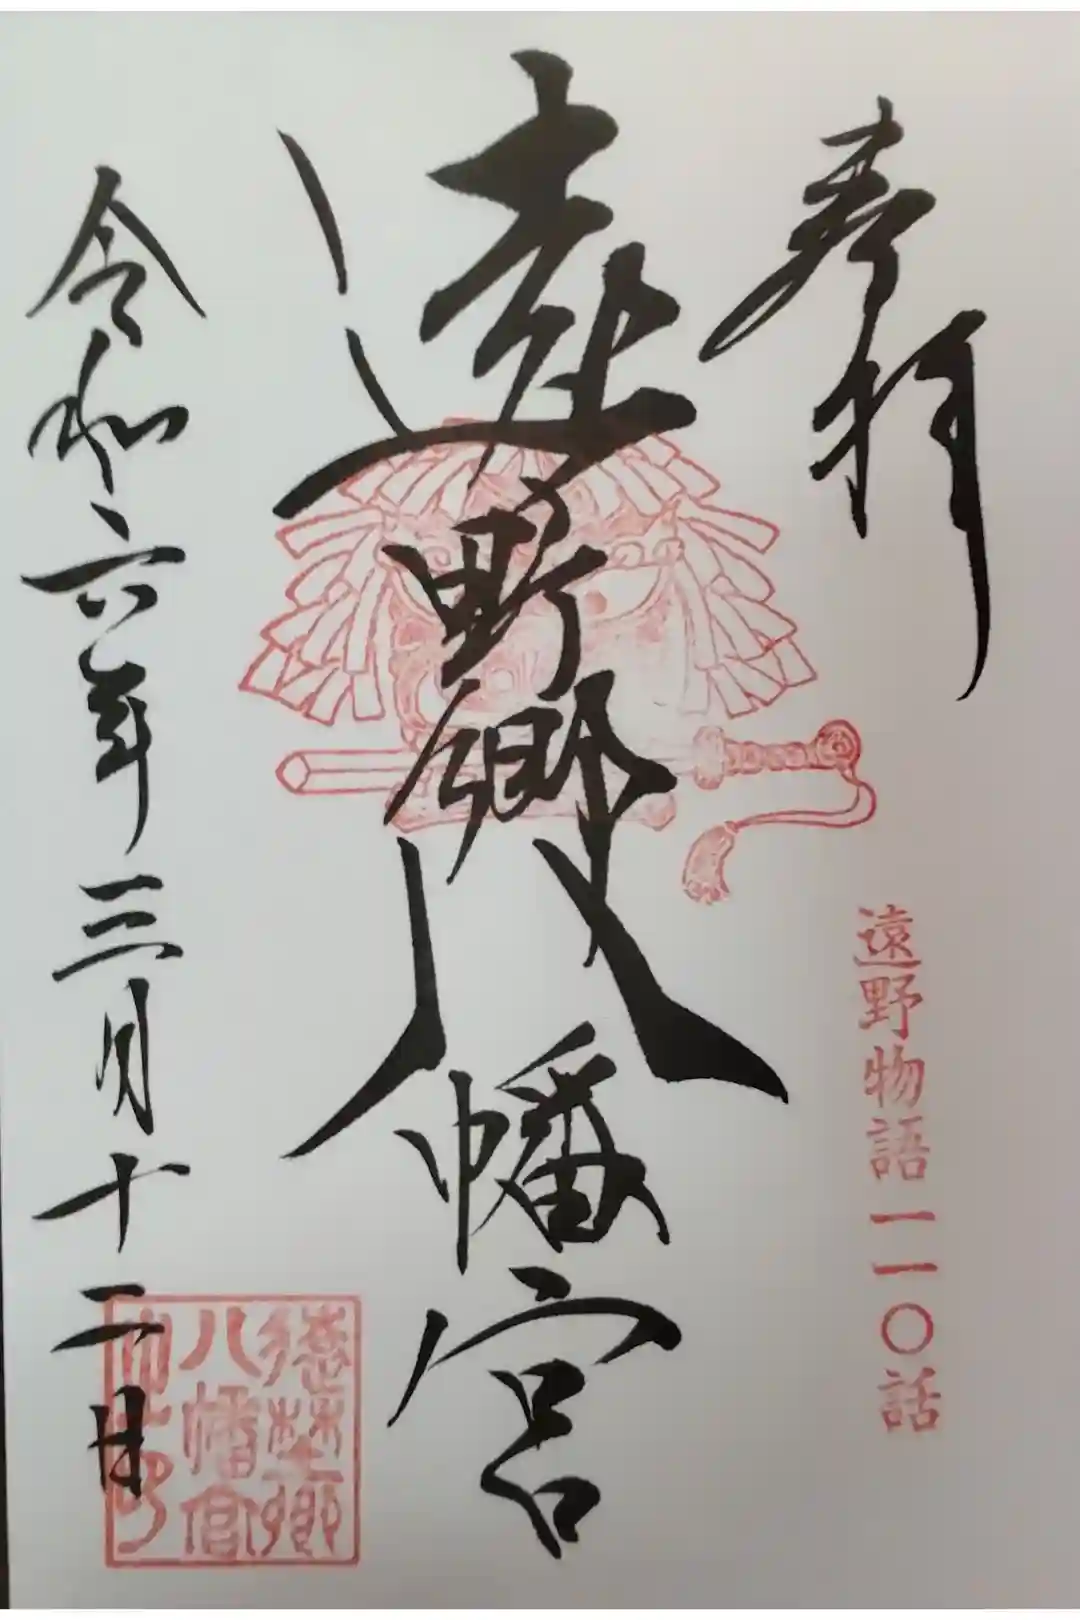 奉拝
遠野物語一一〇話
遠野郷八幡宮
令和六年三月十二日
遠野郷
八幡宮